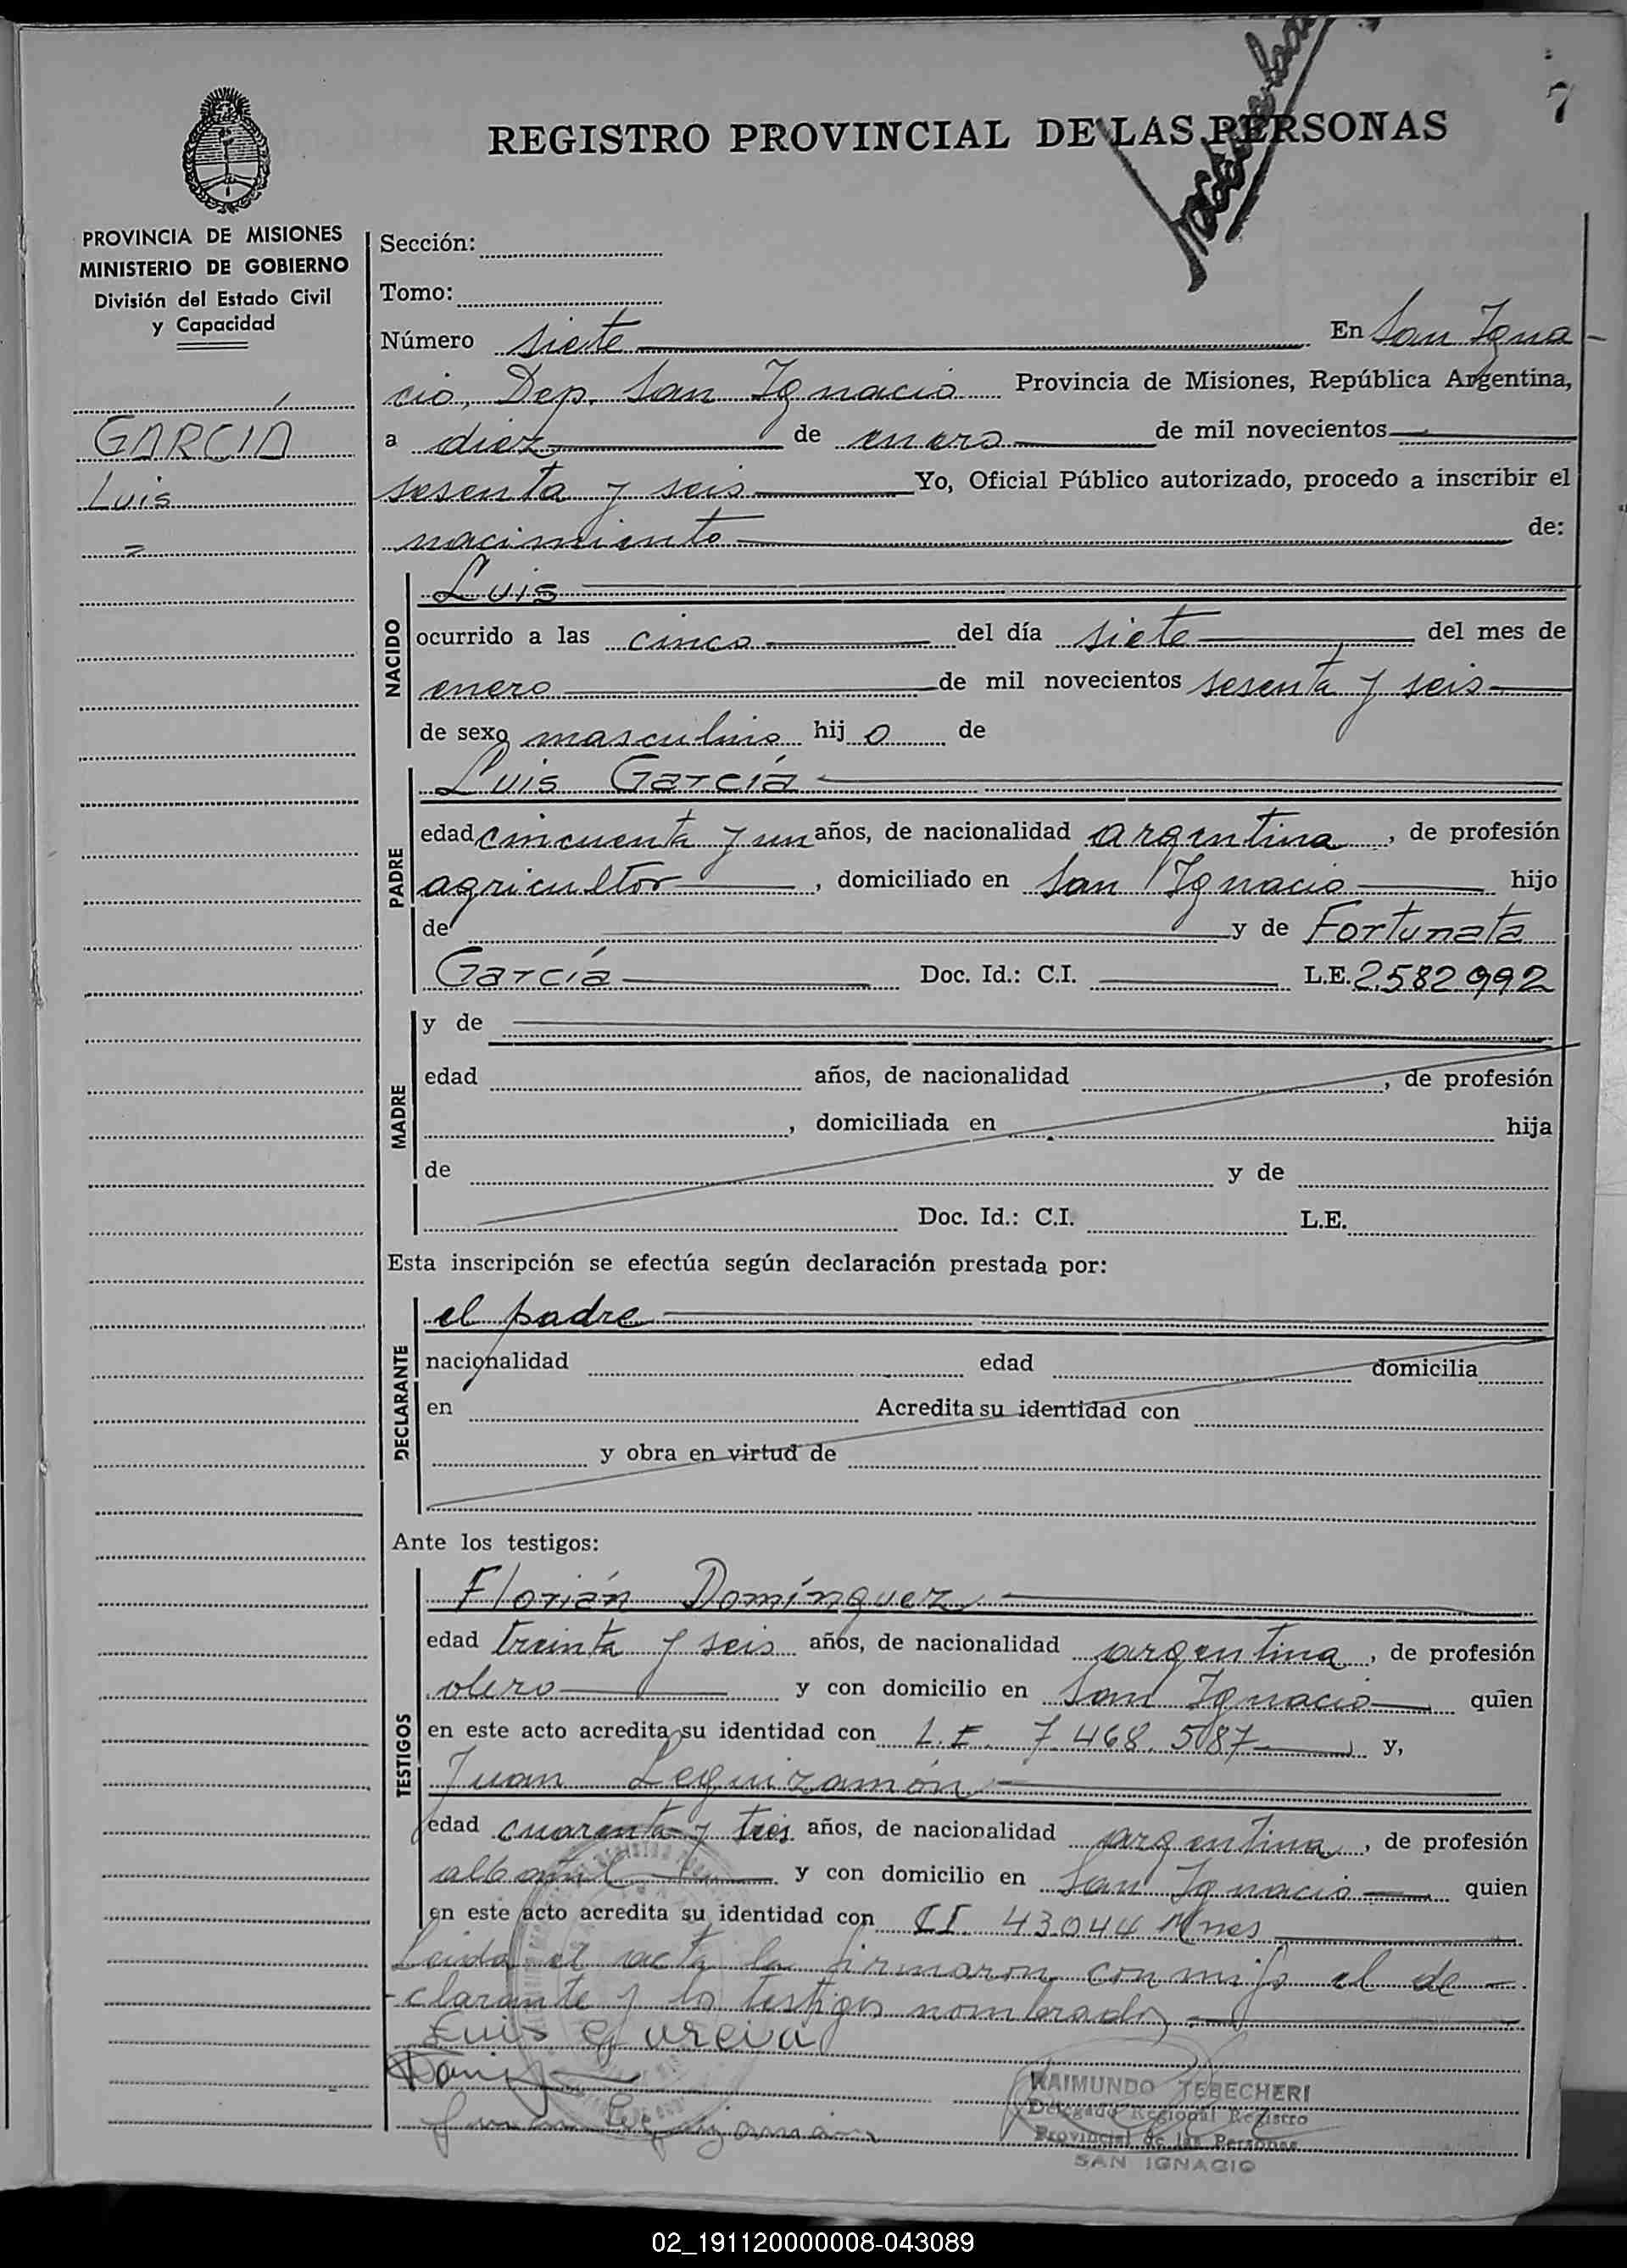 7
REGISTRO PROVINCIAL DE LAS PERSONAS
PROVINCIA DE MISIONES
MINISTERIO DE GOBIERNO
División del Estado Civil
y Capacidad
GARCÍA
Luis
Sección:
Tomo:
Número siete En San Igna-
cio, Dep. San Ignacio Provincia de Misiones, República Argentina,
a diez de enero de mil novecientos
sesenta y seis Yo, Oficial Público autorizado, procedo a inscribir el
nacimiento de:
NACIDO
Luis
ocurrido a las cinco del día siete del mes de
enero de mil novecientos sesenta y seis
de sexo masculino hijo de
PADRE
Luis García
edad cincuenta y un años, de nacionalidad argentina, de profesión
agricultor, domiciliado en San Ignacio hijo
de y de Fortunata
García Doc. Id.: C.I. L.E. 2.582.992
MADRE
y de
edad años, de nacionalidad , de profesión
, domiciliada en hija
de y de
Doc. Id.: C.I. L.E.
Esta inscripción se efectúa según declaración prestada por:
DECLARANTE
el padre
nacionalidad edad domicilia
en Acredita su identidad con
y obra en virtud de
Ante los testigos:
TESTIGOS
Florián Domínguez
edad treinta y seis años, de nacionalidad argentina, de profesión
olero y con domicilio en San Ignacio quien
en este acto acredita su identidad con L.E. 7.468.587 y,
Juan Leguizamón
edad cuarenta y tres años, de nacionalidad argentina, de profesión
albañil y con domicilio en San Ignacio quien
en este acto acredita su identidad con C.I. 43.044 Mnes
Leida el acta la firmaron conmigo el de-
clarante y los testigos nombrados
Luis Garcia
Juan Leguizamón
RAIMUNDO TEBECHERI
Delegado Regional Registro
Provincial de las Personas
SAN IGNACIO
02_191120000008-043089